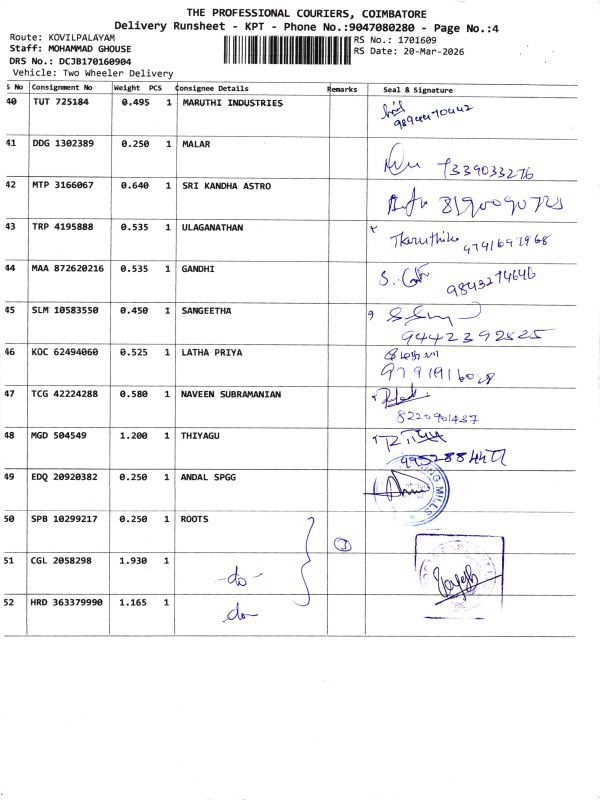 THE PROFESSIONAL COURIERS, COIMBATORE
Delivery Runsheet - KPT - Phone No.:9047080280 - Page No.:4
Route: KOVILPALAYAM
RS No.: 1701609
Staff: MOHAMMAD GHOUSE
RS Date: 20-Mar-2026
DRS No.: DCJB170160904
Vehicle: Two Wheeler Delivery
S No Consignment No Weight PCS Consignee Details Remarks Seal & Signature
40 TUT 725184 0.495 1 MARUTHI INDUSTRIES
9894470442
41 DDG 1302389 0.250 1 MALAR
7339033276
42 MTP 3166067 0.640 1 SRI KANDHA ASTRO
43 TRP 4195888 0.535 1 ULAGANATHAN
44 MAA 872620216 0.535 1 GANDHI
9843274646
45 SLM 10583550 0.450 1 SANGEETHA
9442392525
46 KOC 62494060 0.525 1 LATHA PRIYA
9791916028
47 TCG 42224288 0.580 1 NAVEEN SUBRAMANIAN
8220901437
48 MGD 504549 1.200 1 THIYAGU
49 EDQ 20920382 0.250 1 ANDAL SPGG
MILLS
50 SPB 10299217 0.250 1 ROOTS
51 CGL 2058298 1.930 1
-do-
52 HRD 363379990 1.165 1
do